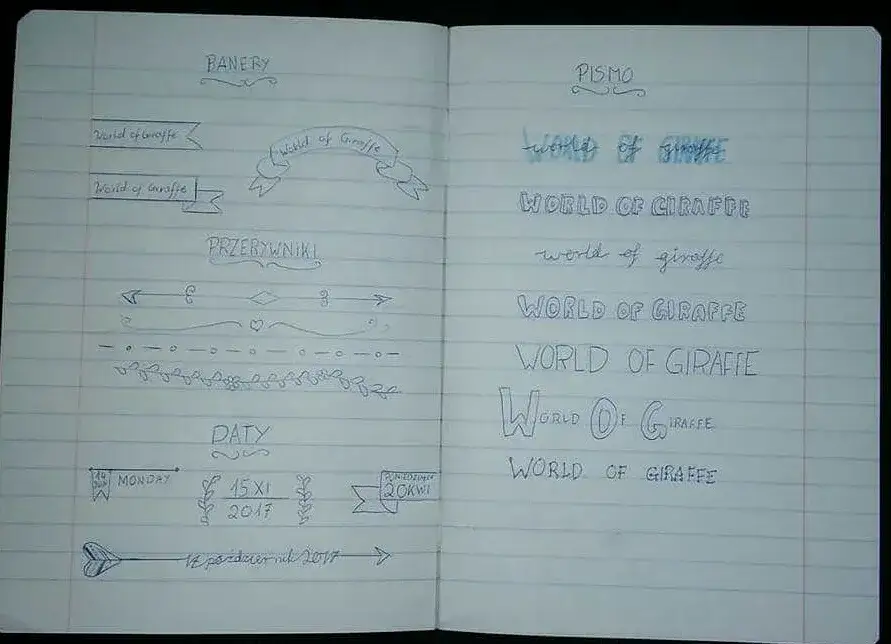 BANERY
World of Giraffe
World of Giraffe
World of Giraffe
PRZERYWNIKI
DATY
14
MONDAY
15 XI
2017
PONIEDZIAŁEK
20 KWI
17 październik 2017
PISMO
WORLD OF GIRAFFE
world of giraffe
WORLD OF GIRAFFE
world of giraffe
WORLD OF GIRAFFE
WORLD OF GIRAFFE
WORLD OF GIRAFFE
WORLD OF GIRAFFE